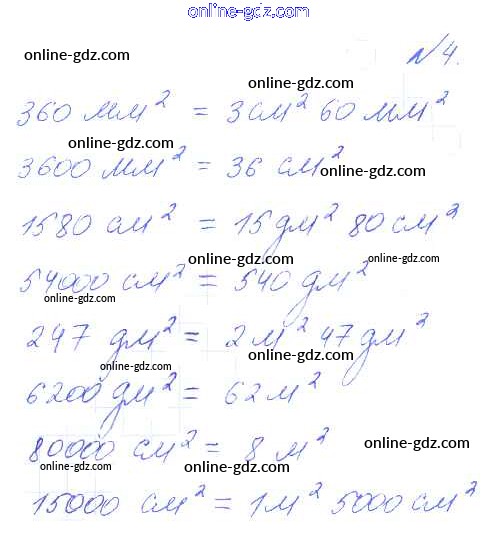 online-gdz.com
№4.
online-gdz.com
online-gdz.com
360 мм² = 3 см² 60 мм²
online-gdz.com
3600 мм² = 36 см²
online-gdz.com
1580 см² = 15 дм² 80 см²
online-gdz.com online-gdz.com
54000 см² = 540 дм²
online-gdz.com online-gdz.com
247 дм² = 2 м² 47 дм²
online-gdz.com
6200 дм² = 62 м²
online-gdz.com
80000 см² = 8 м²
online-gdz.com
online-gdz.com online-gdz.com
15000 см² = 1 м² 5000 см²
online-gdz.com